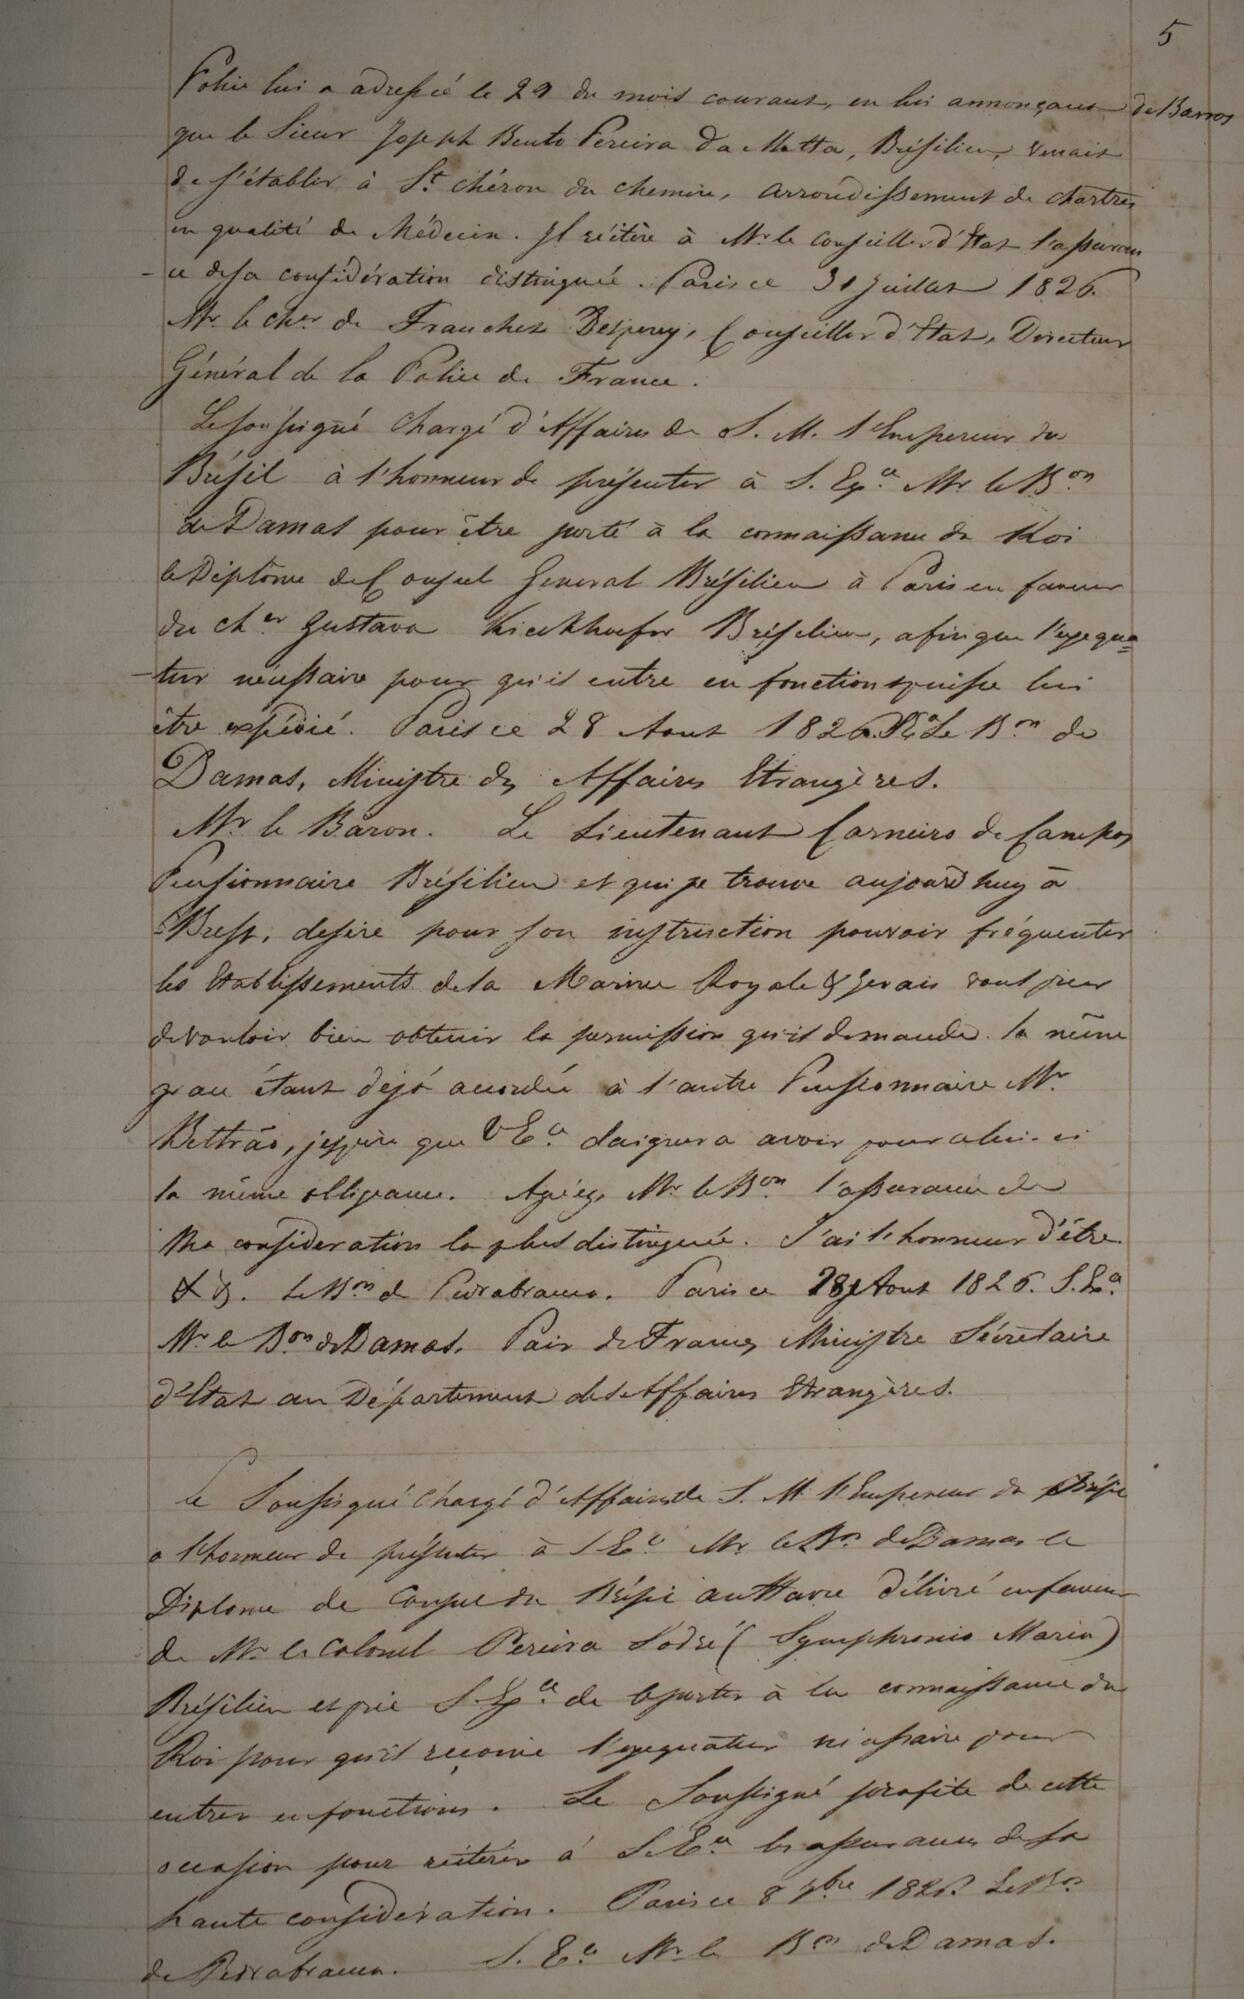 5
Police lui a adressé le 29 du mois courant, en lui annonçant
de Barros
que le Sieur Joseph Bento Pereira da Motta, Brésilien, venait
de s'établir à St. chéron du chemin, arrondissement de chartres
en qualité de Médecin. Il réitère à Mr. le Conseiller d'Etat l'assuran
ce de sa considération distinguée. Paris ce 31 Juillet 1826.
Mr. le Cher. de Franchet Desperey, Conseiller d'Etat, Directeur
Général de la Police de France.
Le soussigné chargé d'Affaires de S. M. l'Empereur du
Brésil à l'honneur de présenter à S. Exce. Mr. le Bon
de Damas pour être porté à la connaissance du Roi
le Diplôme de Consul General Brésilien à Paris en faveur
du cher Gustavo Kieckhoefer Brésilien, afin que l'exequa=
tur nécessaire pour qu'il entre en fonctions puisse lui
être expédié. Paris ce 28 Aout 1826. Le Bon. de
Damas, Ministre des Affaires Etrangères.
Mr. le Baron. Le Lieutenant Carneiro de Campos
Pensionnaire Brésilien et qui se trouve aujourd'huy à
Brest, desire pour son instruction pouvoir fréquenter
les Etablissements de la Marine Royale & je vais vous prier
de vouloir bien obtenir la permission qu'il demande. la même
grace étant dejà accordée à l'autre Pensionnaire Mr.
Beltrão, j'espère que V Ece. daignera avoir pour celui-ci
la même obligeance. Agréez, Mr. le Bon. l'assurance de
Ma consideration la plus distinguée. J'ai l'honneur d'être
& &. Le Bon de Pedrabranca. Paris ce 28 Aout 1826. S. Ea.
Mr. le Bon. de Damas, Pair de France, Ministre Sécretaire
d'Etat au Département des Affaires Etrangères.
Le Soussigné chargé d'Affaires de S. M. l'Empereur du Brésil
a l'honneur de présenter à S Ece. Mr. le Bn. de Damas le
Diplome de Consul du Brésil au Havre délivré en faveur
de Mr. le Colonel Pereira Sodré (Symphronio Maria)
Brésilien et prie S. Exce. de le porter à la connaissance du
Roi pour qu'il reçoive l'exequatur nécessaire pour
entrer en fonctions. Le Soussigné profite de cette
occasion pour réitérer à S. Ece. les assurances de sa
haute considération. Paris ce 8 7bre 1826. Le Bon
de Pedrabranca. S. Ece. Mr. le Bon de Damas.